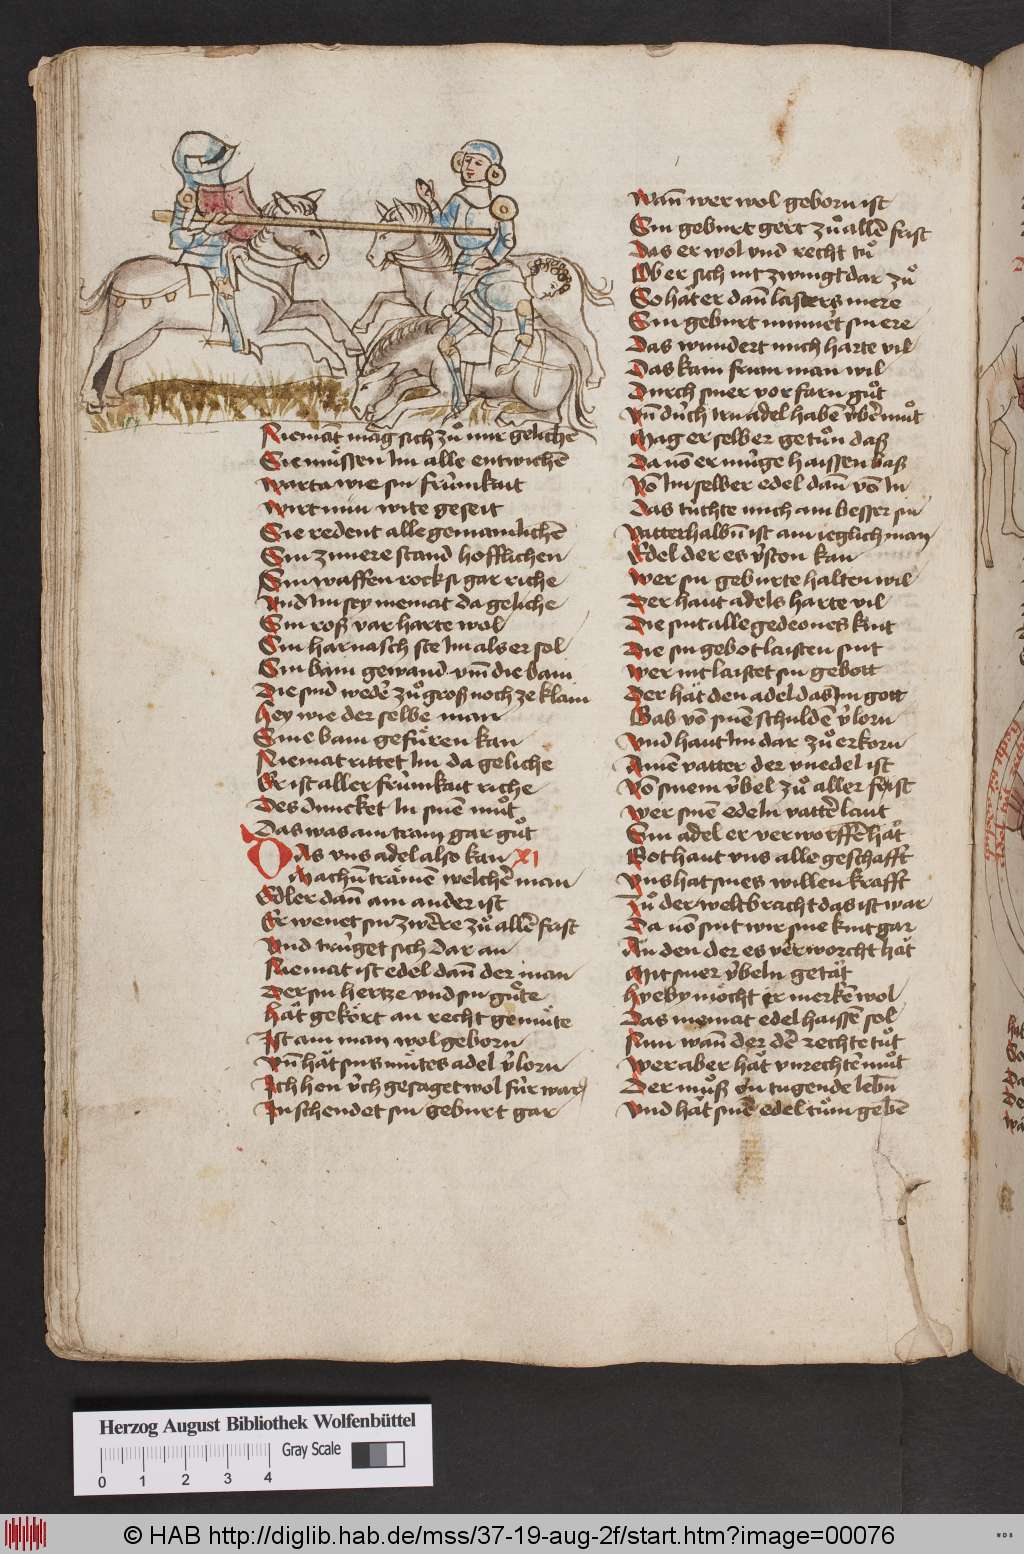 Niemāt mag sich zuͦ mir geliche
Sie muͤssen Im alle entwichē
warta wie sin frúmkait
wirt nun wite geseit
Sie redent alle gemainlichē
Sin zimere stand hofflichen
Sin waffen rock si gar riche
Vnd Im sey niemat da geliche
Sin roß var harte wol
Sin harnasch ste Im als er sol
Sin bain gewand vm̄ die bain
Die sind wedē zuͦ groß noch ze klain
Hey wie der selbe man
Sine bain gefuͤren kan
Niemat rittet Im da geliche
Er ist aller frúmkait riche
Des duncket In sinē muͦt
Das was ain tram gar guͦt
DAs vns adel also kan XI
Machū traͤmē welchē man
Edler dañ ain ander ist
Er wenet sin zwere zuͦ allē frist
Vnd trúget sich dar an
Niemat ist edel dañ der man
Der sin hertze vnd sin guͦte
Haͤt gekoͤrt an recht gemuͤte
Ist ain man wol geborn
Vn̄ haͤt sins muͤtes adel v̓lorn
Ich hon v́ch gesaget wol fúr war
In schendet sin geburt gar
Wañ wer wol geborn ist
Sin geburt gert zuͦ allē frist
Das er wol vnd recht tuͦ
Ob er sich nit zwingt dar zuͦ
So haͤt er dañ lasters mere
Sin geburt nimmēt sin ere
Das wundert mich harte vil
Das kain frum man wil
Durch siner vor farn guͦt
Vn̄ dúch irn adel habe v́bē muͦt
Mag er selber getuͦn daß
Da vō er múge haissen baß
Vō Im selber edel dañ vō In
Das túchte mich ain besser sin
Vatterhalbū ist ain ieglich man
Edel der es v̓ston kan
Wer sin geburte halten wil
Der haut adels harte vil
Die sint alle gedeones kint
Die sin gebot laisten sint
Wer nit laistet sin gebott
Der haͤt den adel das Im gott
Gab vō sinē schuldē v̓lorn
Vnd haut Im dar zuͦ erkorn
Ainē vatter der vnedel ist
Vō sinem v́bel zuͦ aller frist
Wer sinē edeln vattē laut
Sin adel er verworffē haͤt
Got haut vns alle geschafft
Vns hat sines willen krafft
Zuͦ der welt bracht das ist war
Da vō sint wir sine kint gar
An den der es verworcht haͤt
Mit siner v́beln getaͤt
Hye by moͤcht ir merkē wol
Das niemat edel haissē sol
Nun wañ der dē rechte tuͦt
Wer aber haͤt vnrechtē muͦt
Der muͦß on tugende lebū
Vnd haͤt sinē edel tuͦm gebē
Herzog August Bibliothek Wolfenbüttel
Gray Scale
0 1 2 3 4
© HAB http://diglib.hab.de/mss/37-19-aug-2f/start.htm?image=00076